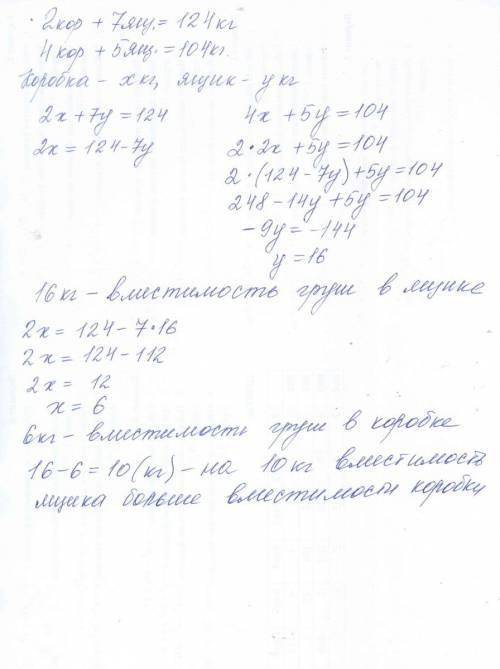 2кор + 7ящ. = 124кг
4кор + 5ящ. = 104кг.
Коробка - x кг, ящик - y кг
2x + 7y = 124
2x = 124 - 7y
4x + 5y = 104
2·2x + 5y = 104
2·(124 - 7y) + 5y = 104
248 - 14y + 5y = 104
-9y = -144
y = 16
16кг - вместимость груш в ящике
2x = 124 - 7·16
2x = 124 - 112
2x = 12
x = 6
6кг - вместимость груш в коробке
16 - 6 = 10 (кг) - на 10кг вместимость
ящика больше вместимости коробки